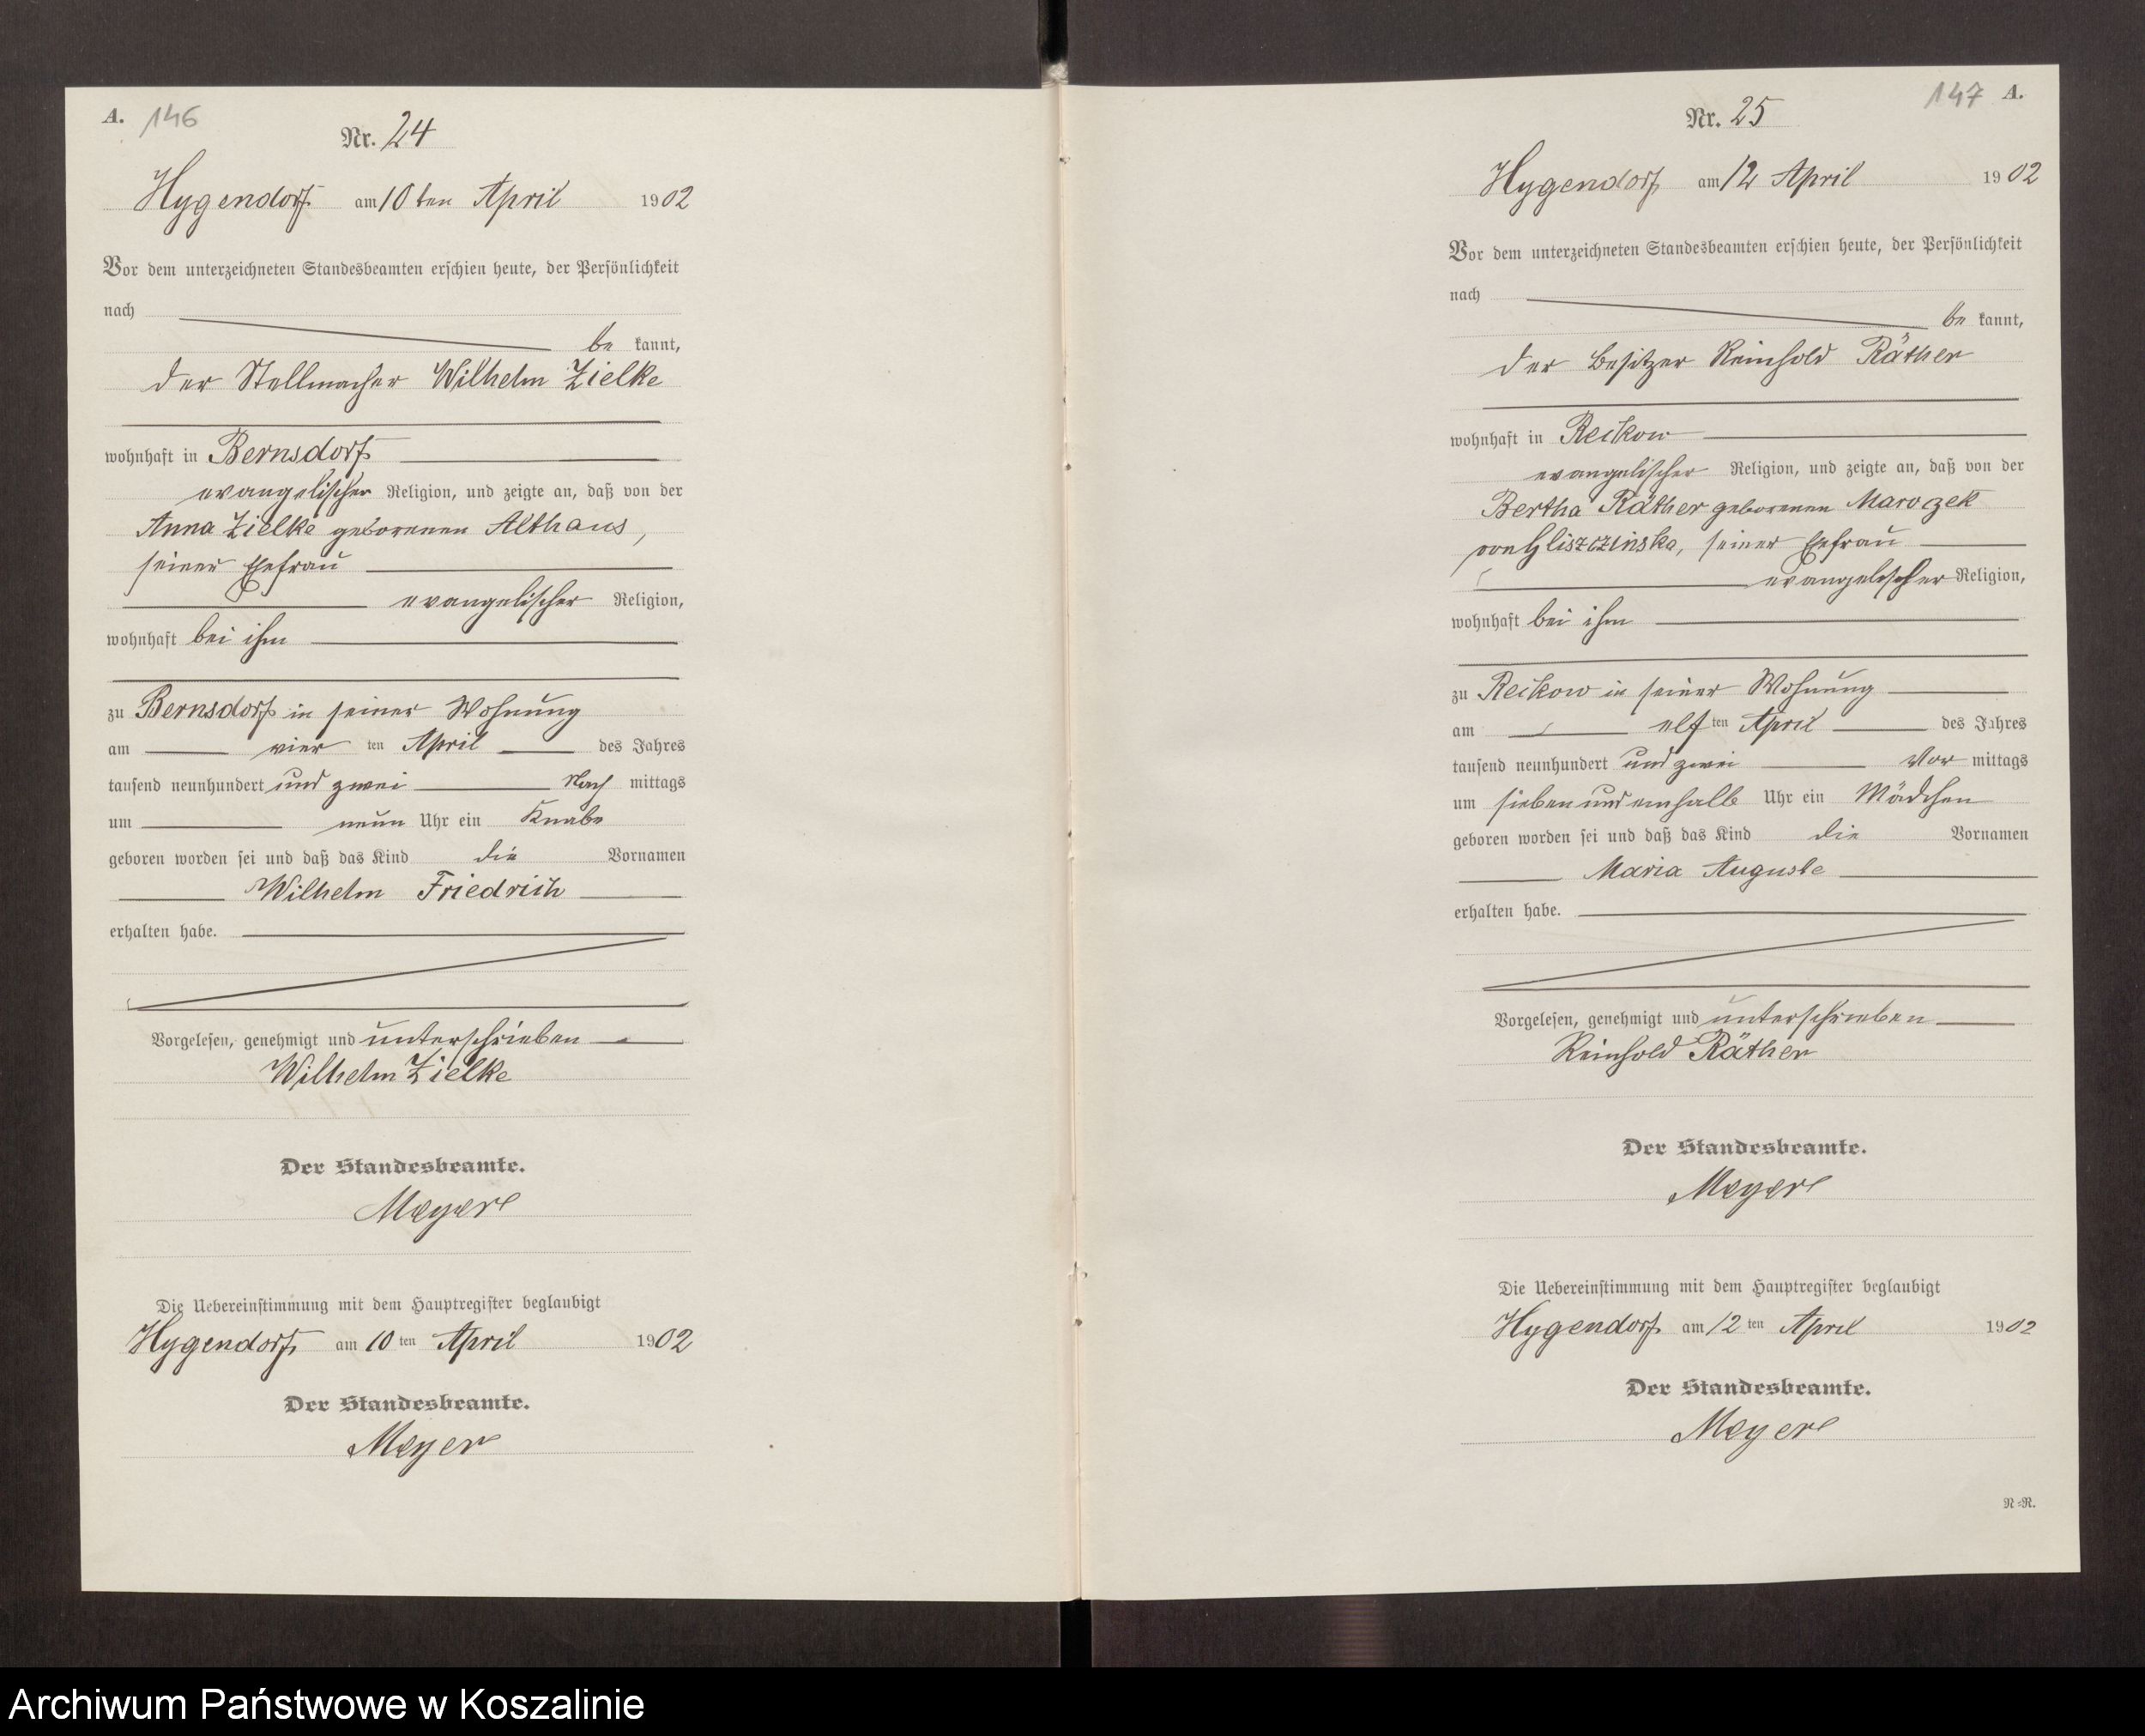 A. 146
Nr. 24
Hygendorf am 10ten April 1902
Vor dem unterzeichneten Standesbeamten erschien heute, der Persönlichkeit
nach
be kannt,
der Stellmacher Wilhelm Zielke
wohnhaft in Bernsdorf
evangelischer Religion, und zeigte an, daß von der
Anna Zielke geborenen Althaus,
seiner Ehefrau
evangelischer Religion,
wohnhaft bei ihm
zu Bernsdorf in seiner Wohnung
am vier ten April des Jahres
tausend neunhundert und zwei Nach mittags
um neun Uhr ein Knabe
geboren worden sei und daß das Kind die Vornamen
Wilhelm Friedrich
erhalten habe.
Vorgelesen, genehmigt und unterschrieben
Wilhelm Zielke
Der Standesbeamte.
Meyer
Die Uebereinstimmung mit dem Hauptregister beglaubigt
Hygendorf am 10 ten April 1902
Der Standesbeamte.
Meyer
147 A.
Nr. 25
Hygendorf am 12 April 1902
Vor dem unterzeichneten Standesbeamten erschien heute, der Persönlichkeit
nach
be kannt,
der Besitzer Reinhold Räther
wohnhaft in Reckow
evangelischer Religion, und zeigte an, daß von der
Bertha Räther geborenen Maroczek
von Gliszczinska, seiner Ehefrau
evangelischer Religion,
wohnhaft bei ihm
zu Reckow in seiner Wohnung
am elf ten April des Jahres
tausend neunhundert und zwei Vor mittags
um sieben und einhalb Uhr ein Mädchen
geboren worden sei und daß das Kind die Vornamen
Maria Auguste
erhalten habe.
Vorgelesen, genehmigt und unterschrieben
Reinhold Räther
Der Standesbeamte.
Meyer
Die Uebereinstimmung mit dem Hauptregister beglaubigt
Hygendorf am 12 ten April 1902
Der Standesbeamte.
Meyer
N=R.
Archiwum Państwowe w Koszalinie